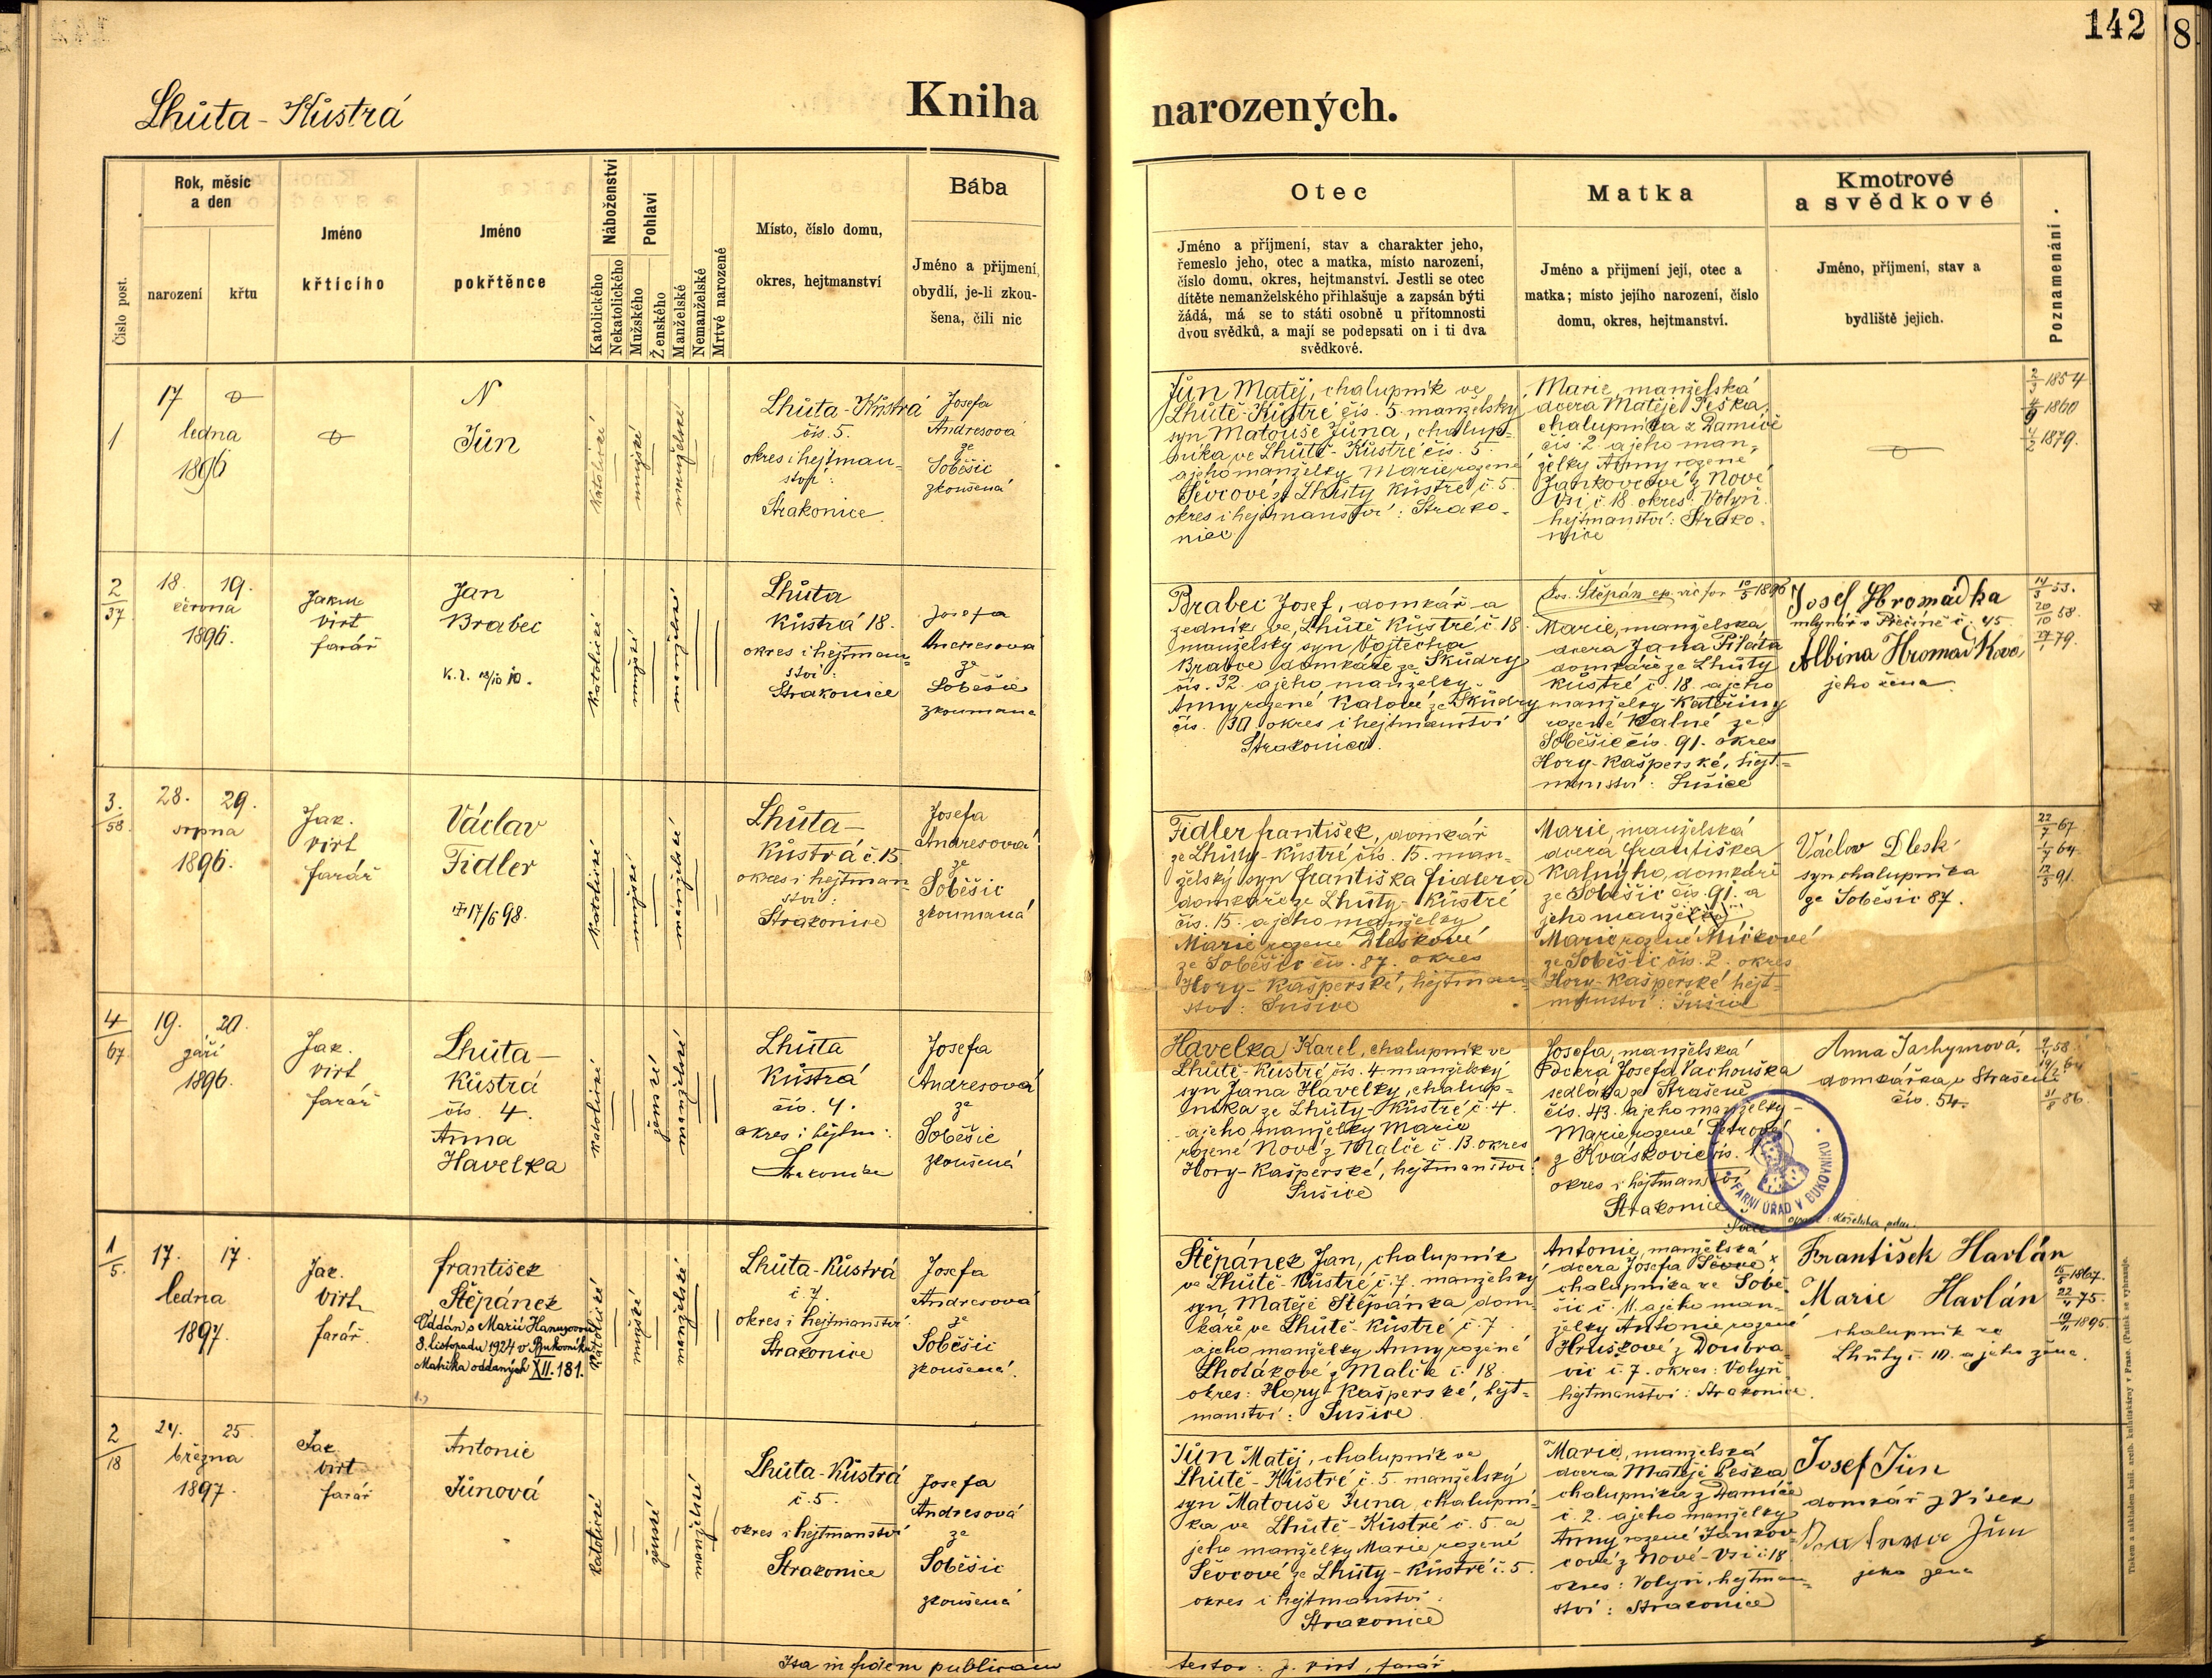 142
8
Lhůta - Kůstrá
Kniha narozených.
Číslo post.
Rok, měsíc
a den
narození
křtu
Jméno
křtícího
Jméno
pokřtěnce
Náboženství
Katolického
Nekatolického
Pohlaví
Mužského
Ženského
Manželské
Nemanželské
Mrtvé narozené
Místo, číslo domu,
okres, hejtmanství
Bába
Jméno a příjmení,
obydlí, je-li zkou-
šena, čili nic
Otec
Jméno a příjmení, stav a charakter jeho,
řemeslo jeho, otec a matka, místo narození,
číslo domu, okres, hejtmanství. Jestli se otec
dítěte nemanželského přihlašuje a zapsán býti
žádá, má se to státi osobně u přítomnosti
dvou svědků, a mají se podepsati on i ti dva
svědkové.
Matka
Jméno a příjmení její, otec a
matka; místo jejího narození, číslo
domu, okres, hejtmanství.
Kmotrové
a svědkové
Jméno, příjmení, stav a
bydliště jejich.
Poznamenání.
1
17
ledna
1896
N
Jůn
katolické
mužské
manželské
Lhůta - Kůstrá
čís. 5.
okres i hejtman-
ství:
Strakonice.
Josefa
Andresová
ze
Soběšic
zkoušená
Jůn Matěj, chalupník ve
Lhůtě - Kůstré čís. 5. manželský
syn Matouše Jůna, chalup-
níka ve Lhůtě - Kůstré čís. 5.
a jeho manželky Marie rozené
Ševcové ze Lhůty Kůstré č. 5.
okres i hejtmanství: Strako-
nice
Marie, manželská
dcera Matěje Peška,
chalupníka z Damíče
čís. 2 a jeho man-
želky Anny rozené
Jankovcové z Nové
Vsi č. 18. okres: Volyň.
hejtmanství: Strako-
nice
2/3 1854
4/9 1860
4/2 1879.
2/37
18. 19.
června
1896.
Jakub
Virt
farář
Jan
Brabec
katolické
mužské
manželské
Lhůta
Kůstrá 18.
okres i hejtman-
ství:
Strakonice
Josefa
Andresová
ze
Soběšic
zkoumaná
Brabec Josef, domkář a
zedník ve Lhůtě Kůstré č. 18
manželský syn Vojtěcha
Brabce domkáře ze Škůdry
čís. 32. a jeho manželky
Anny rozené Kalové ze Škůdry
čís. 30 okres i hejtmanství
Strakonice.
Jos. Štěpán ep. vic for 10/5 1896
Marie, manželská
dcera Jana Piláta
domkáře ze Lhůty
Kůstré č. 18. a jeho
manželky Kateřiny
rozené Kalné ze
Soběšic čís. 91. okres
Hory - Kašperské, hejt-
manství: Sušice
Josef Hromádka
mlynář v Přečíně č. 45.
Albina Hromadková
jeho žena.
14/3 53.
20/10 58.
27/1 79.
3./58
28. 29.
srpna
1896.
Jak.
Virt
farář
Václav
Fidler
17/6 98.
katolické
mužské
manželské
Lhůta -
Kůstrá č. 15
okres i hejtman-
ství:
Strakonice
Josefa
Andresová
ze
Soběšic
zkoumaná
Fidler František, domkář
ze Lhůty - Kůstré čís. 15. man-
želský syn Františka Fidlera
domkáře ze Lhůty - Kůstré
čís. 15. a jeho manželky
Marie rozené Dleskové
ze Soběšic čís. 87. okres
Hory - Kašperské, hejtman-
ství: Sušice
Marie, manželská
dcera Františka
Kalného, domkáře
ze Soběšic čís. 91. a
jeho manželky
Marie rozené Míčkové
ze Soběšic čís. 2. okres
Hory - Kašperské hejt-
manství: Sušice
Václav Dlesk
syn chalupníka
ze Soběšic 87.
22/7 67.
1/7 64.
12/5 91.
4/67
19. 20.
září
1896.
Jak.
Virt
farář
Lhůta -
Kůstrá
čís. 4.
Anna
Havelka
katolické
ženské
manželské
Lhůta
Kůstrá
čís. 4.
okres i hejtm:
Strakonice
Josefa
Andresová
ze
Soběšic
zkoušená
Havelka Karel, chalupník ve
Lhůtě - Kůstré, čís. 4 manželský
syn Jana Havelky, chalup-
níka ze Lhůty - Kůstré č. 4.
a jeho manželky Marie
rozené Nové z Malče č. 13. okres
Hory - Kašperské, hejtmanství:
Sušice
Josefa, manželská
dcera Josefa Vachouška
sedláka ze Strašeně
čís. 43. a jeho manželky -
Marie rozené Petrové
z Kváskovic čís. 1
okres i hejtmanství
Strakonice
Anna Jachymová,
domkářka v Strašeni
čís. 54.
31/8 86.
FARNÍ ÚŘAD V BUKOVNÍKU
1/5.
17. 17.
ledna
1897.
Jak.
Virt
farář.
František
Štěpánek
Oddán s Marií Hanusovou
8. listopadu 1924 v Bukovníku
Matrika oddaných XII. 181.
katolické
mužské
manželské
Lhůta - Kůstrá
č. 7.
okres i hejtmanství
Strakonice
Josefa
Andresová
ze
Soběšic
zkoušená.
Štěpánek Jan, chalupník
ve Lhůtě - Kůstré, č. 7. manželský
syn Matěje Štěpánka dom-
káře ve Lhůtě - Kůstré č. 7.
a jeho manželky Anny rozené
Lhotákové z Malče č. 18.
okres: Hory - Kašperské, hejt-
manství: Sušice
Antonie, manželská
dcera Josefa Ševce x
chalupníka ve Sobě-
šic č. 11. a jeho man-
želky Antonie rozené
Hruškové z Doubra-
vic č. 7. okres: Volyň
hejtmanství: Strakonice.
František Havlán
Marie Havlán
chalupník ze
Lhůty č. 10. a jeho žena.
15/5 1867.
22/4 75.
19/11 1895
2/18
24. 25.
března
1897.
Jak.
Virt
farář
Antonie
Jůnová
katolické
ženské
manželské
Lhůta - Kůstrá
č. 5.
okres i hejtmanství
Strakonice
Josefa
Andresová
ze
Soběšic
zkoušená
Jůn Matěj, chalupník ve
Lhůtě - Kůstré č. 5. manželský
syn Matouše Jůna, chalupní-
ka ve Lhůtě - Kůstré č. 5. a
jeho manželky Marie rozené
Ševcové ze Lhůty - Kůstré č. 5.
okres i hejtmanství:
Strakonice
Marie, manželská
dcera Matěje Peška
chalupníka z Damíče
č. 2. a jeho manželky
Anny rozené Jankov-
cové z Nové - Vsi č. 18
okres: Volyň, hejtman-
ství: Strakonice
Josef Jůn
domkář z Vísek
Jůn
jeho žena
Ita in fidem publicam
testor: J. Virt, farář.